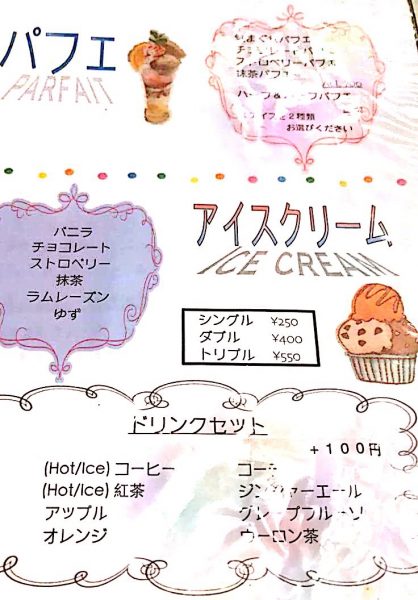 パフェ
PARFAIT
パフェ
パフェ
抹茶パフェ
２種類
お選びください
アイスクリーム
ICE CREAM
バニラ
チョコレート
ストロベリー
抹茶
ラムレーズン
ゆず
シングル ¥250
ダブル ¥400
トリプル ¥550
ドリンクセット
＋１００円
(Hot/Ice) コーヒー
(Hot/Ice) 紅茶
アップル
オレンジ
コーラ
ジンジャーエール
グレープフルーツ
ウーロン茶